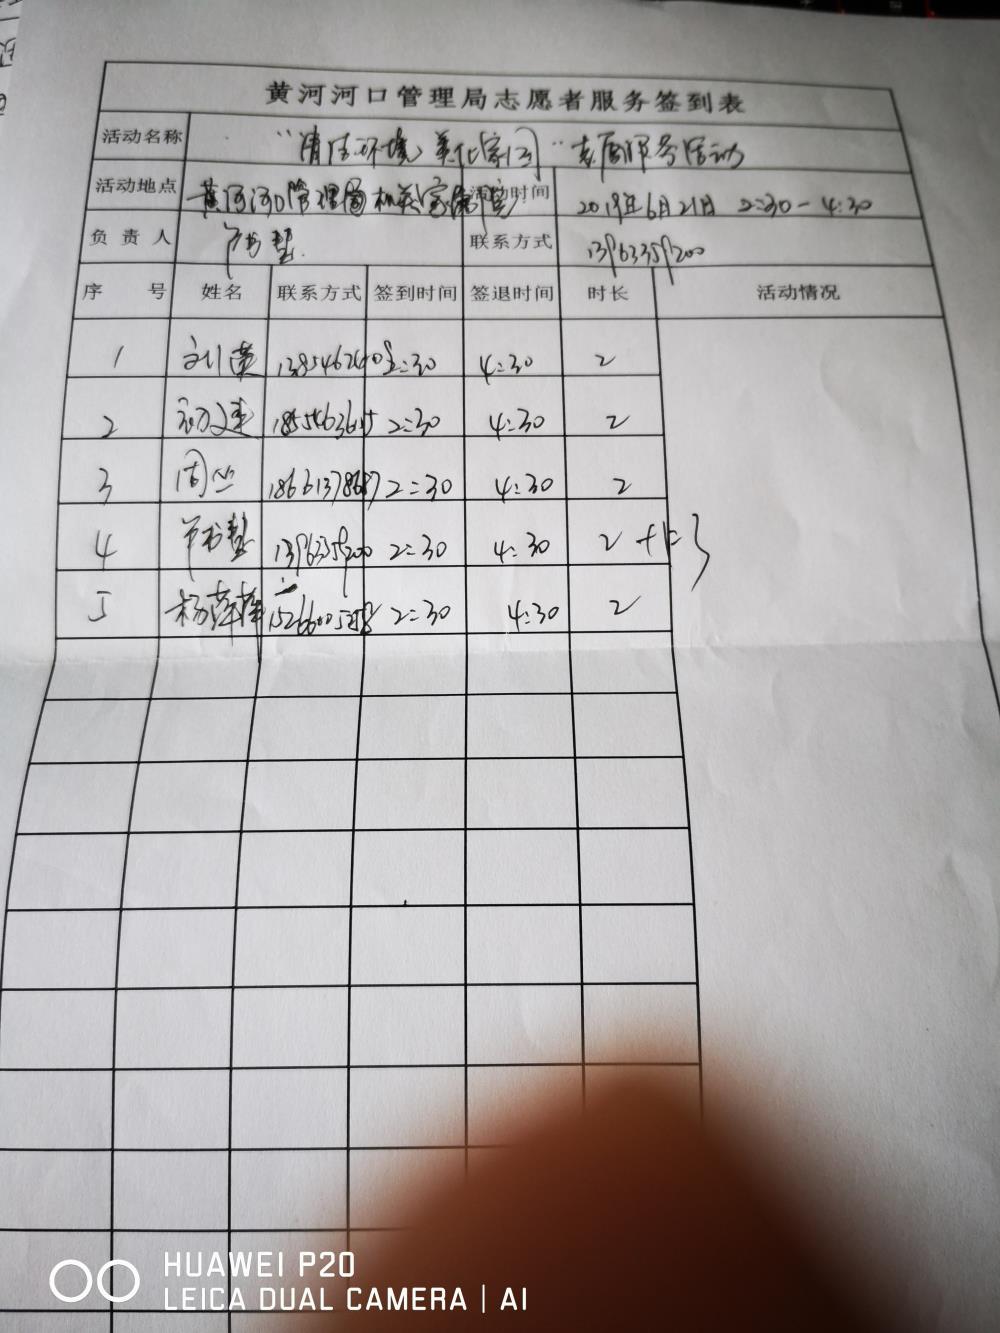 黄河河口管理局志愿者服务签到表
活动名称 "清洁环境 美化家园"志愿服务活动
活动地点 黄河河口管理局机关家属院 活动时间 2019年6月21日 2:30-4:30
负责人 联系方式 13963359200
序号 姓名 联系方式 签到时间 签退时间 时长 活动情况
1 2:30 4:30 2
2 2:30 4:30 2
3 周 2:30 4:30 2
4 13963359200 2:30 4:30 2
5 杨萍萍 2:30 4:30 2
HUAWEI P20
LEICA DUAL CAMERA | AI